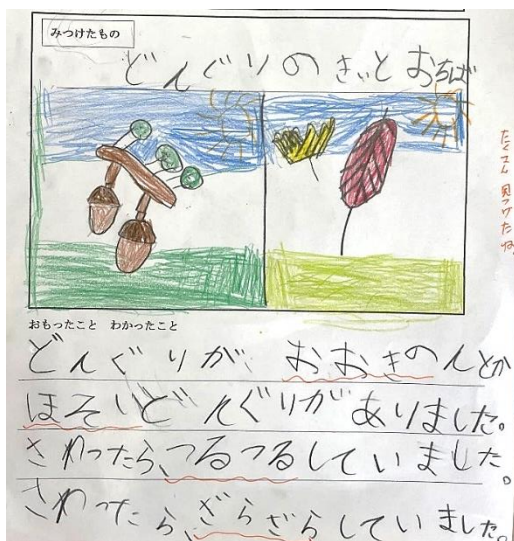 みつけたもの
どんぐりのきいとおちば
たくさん見つけたね
おもったこと　わかったこと
どんぐりが、おおきのんとか
ほそいどんぐりがありました。
さわったら、つるつるしていました。
さわったら、ざらざらしていました。